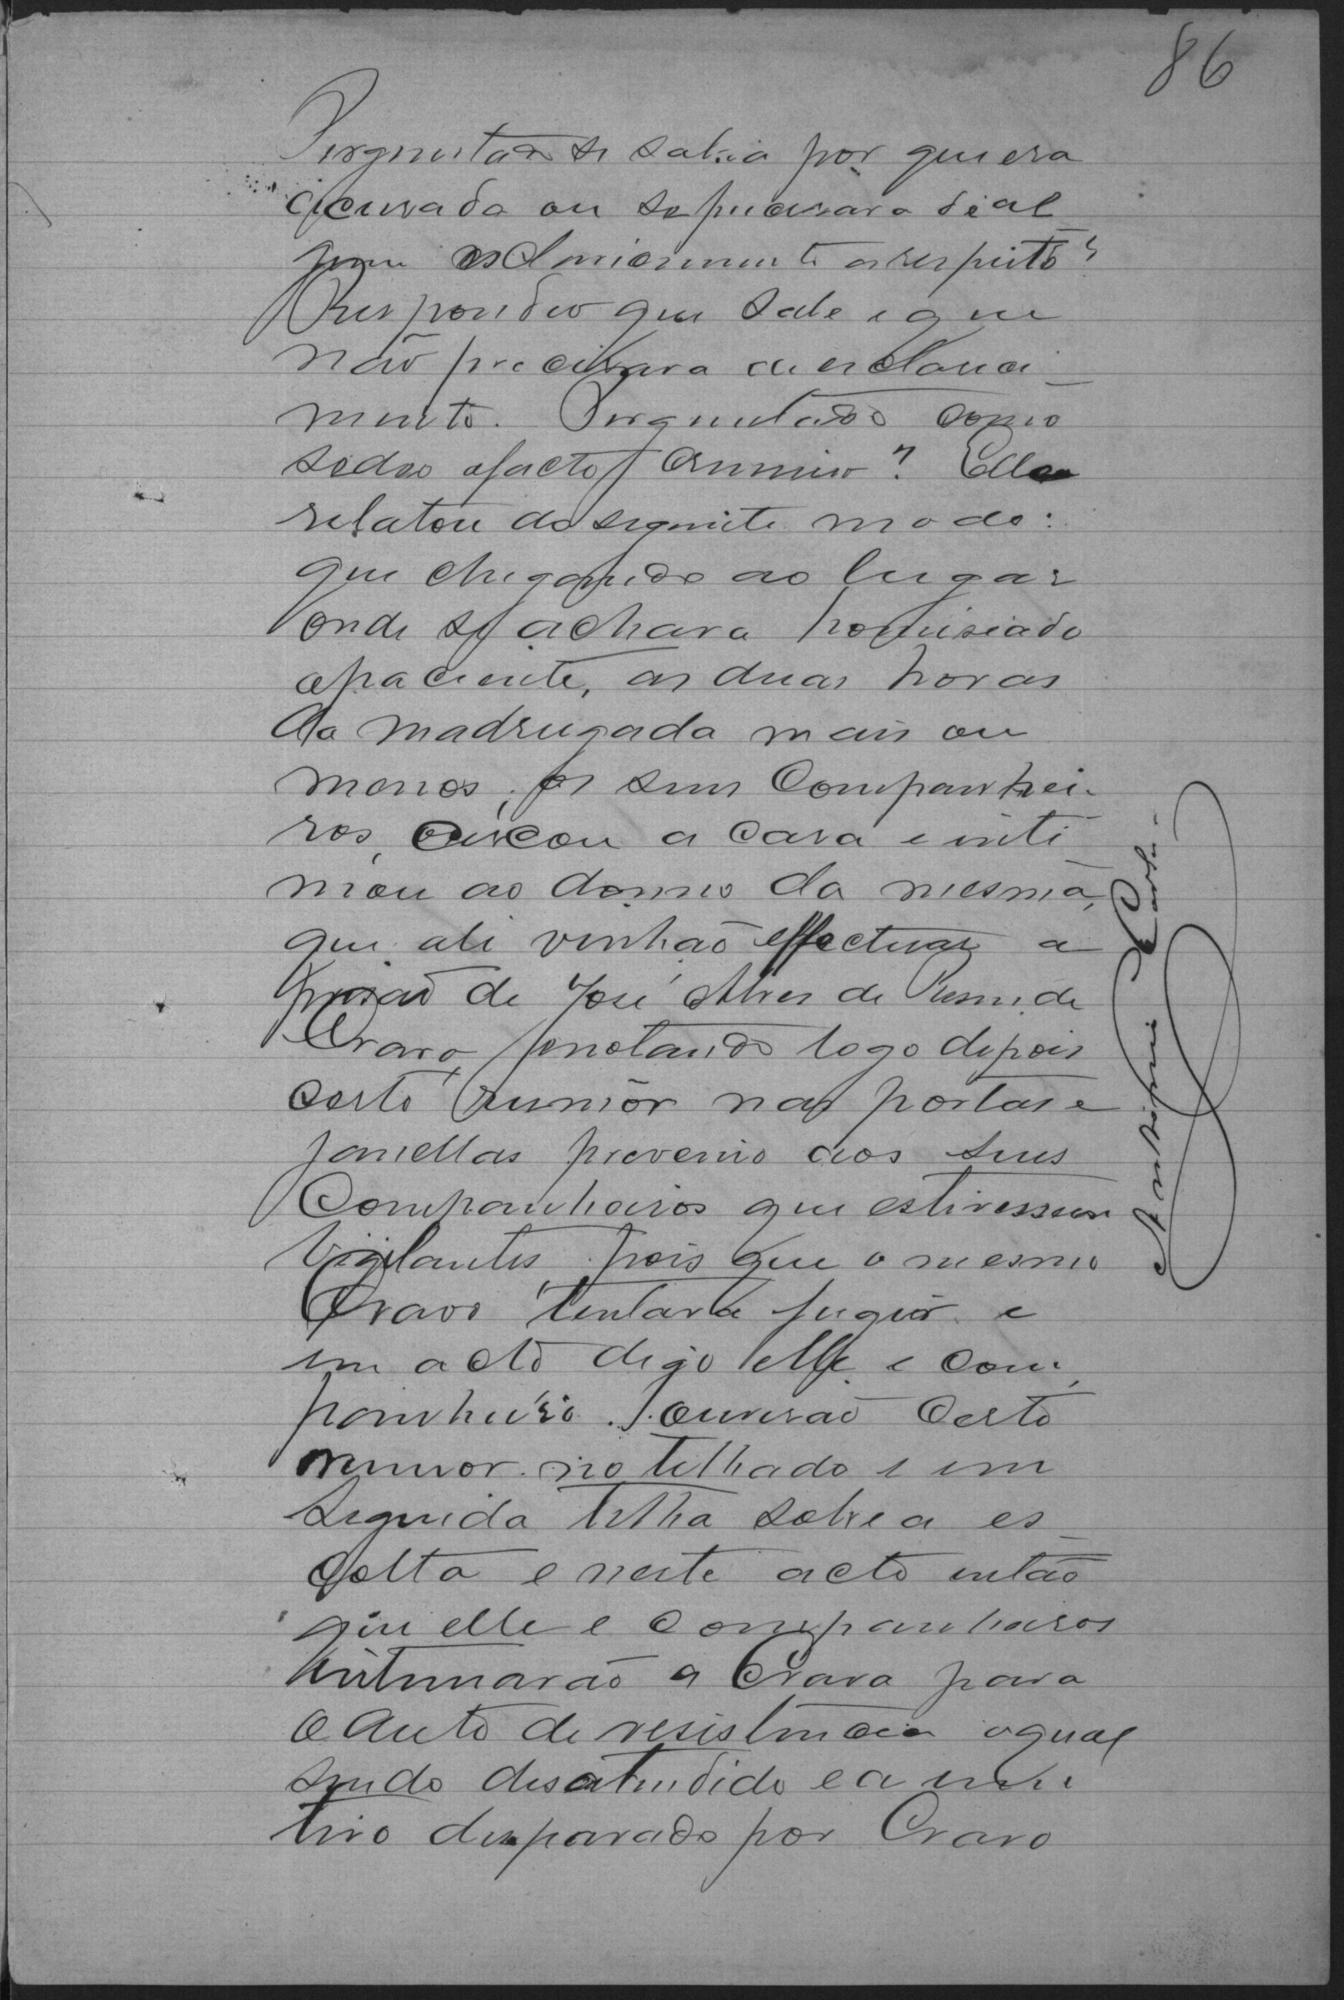 86
Perguntado si sabia por que era
accusado ou se precisava de al
gum esclarecimento a respeito?
Respondeo que sabe e que
não precisava de esclareci-
mento. Perguntado como
se deo o facto criminoso? Elle
relatou do seguinte modo:
que chegando ao lugar
onde se achava homisiado
o paciente, as duas horas
da madrugada mais ou
menos, os seus companhei-
ros, cercou a casa e inti
mou ao donno da mesma,
que ali vinhão effectuar a
prisão de José Alves de
Cravo, notando logo depois
certo rumôr nas portas e
janellas prevenio aos seus
companheiros que estivessem
vigilantes, pois que o mesmo
Cravo tentava fugir e
em acto digo elle e com
panheiro. ouvirão certo
rumor no telhado e em
seguida telha sobre a es-
colta e neste acto então
que elle e companheiros
intimarão a Cravo para
o auto de resistencia o qual
sendo desatendido e a um
tiro desparado por Cravo